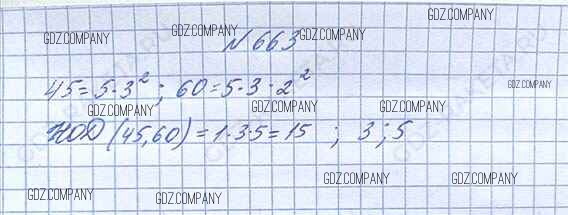 GDZ.COMPANY
GDZ.COMPANY GDZ.COMPANY GDZ.COMPANY
№ 663
45 = 5·3²; 60 = 5·3·2²
GDZ.COMPANY
GDZ.COMPANY GDZ.COMPANY GDZ.COMPANY
НОД (45,60) = 1·3·5 = 15 ; 3; 5
GDZ.COMPANY GDZ.COMPANY
GDZ.COMPANY GDZ.COMPANY